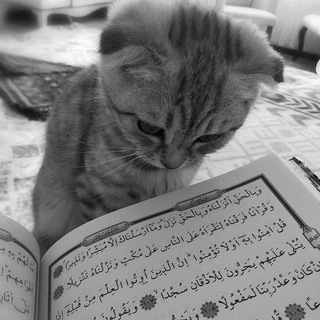 وَبِالْحَقِّ أَنْزَلْنَاهُ وَبِالْحَقِّ نَزَلَ وَمَا أَرْسَلْنَاكَ إِلَّا مُبَشِّرًا وَنَذِيرًا
وَقُرْآنًا فَرَقْنَاهُ لِتَقْرَأَهُ عَلَى النَّاسِ عَلَى مُكْثٍ وَنَزَّلْنَاهُ تَنْزِيلًا
قُلْ آمِنُوا بِهِ أَوْ لَا تُؤْمِنُوا إِنَّ الَّذِينَ أُوتُوا الْعِلْمَ مِنْ قَبْلِهِ إِذَا
يُتْلَى عَلَيْهِمْ يَخِرُّونَ لِلْأَذْقَانِ سُجَّدًا وَيَقُولُونَ
كَانَ وَعْدُ رَبِّنَا لَمَفْعُولًا